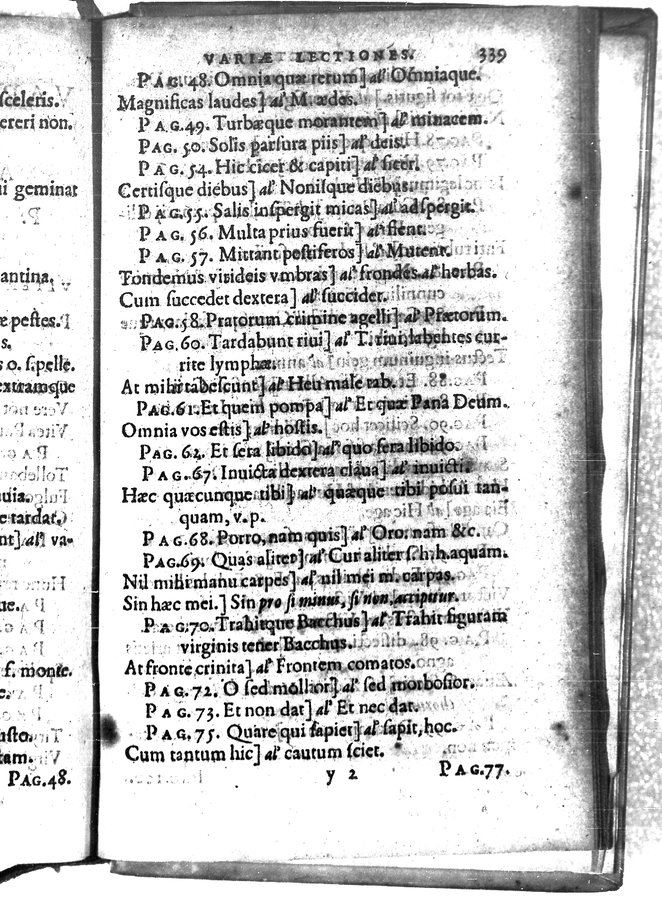 sceleris.
ereri non.
ui geminat
antina,
e pestes.
s.
s o. s. pelle.
extramque
uia.
e tardat,
nt] al' va-
ue.
f. monte.
e.
usto.
tam.
PAG. 48.
VARIÆ LECTIONES. 339
PAG. 48. Omnia quæ rerum] al' Omniaque.
Magnificas laudes] al' M. ædes.
PAG. 49. Turbæque morantem] al' minacem.
PAG. 50. Solis parsura piis] al' deis.
PAG. 54. Hic cicer & capiti] al' sicer.
Certisque diebus] al' Nonisque diebus.
PAG. 55. Salis inspergit micas] al' adspergit.
PAG. 56. Multa prius fuerit] al' flent.
PAG. 57. Mittant pestiferos] al' Mutent.
Tondemus virideis vmbras] al' frondes al' herbas.
Cum succedet dextera] al' succider.
PAG. 58. Pratorum crimine agelli] al' Pfætorum.
PAG. 60. Tardabunt riui] al' T. riui, labentes cur-
rite lymphæ.
At mihi tabescunt] al' Heu male tab.
PAG. 61. Et quem pompa] al' Et quæ Pana Deum.
Omnia vos estis] al' hostis.
PAG. 62. Et sera libido] al' quo sera libido.
PAG. 67. Inuicta dextera claua] al' inuicti.
Hæc quæcunque tibi] al' quæque tibi posui tan-
quam, v. p.
PAG. 68. Porro, nam quis] al' Oro, nam &c.
PAG. 69. Quas aliter] al' Cur aliter s. h. h. aquam.
Nil mihi manu carpes] al' nil mei m. carpas.
Sin hæc mei.] Sin pro si minus, si non, accipitur.
PAG. 70. Trahitque Bacchus] al' Trahit figuram
virginis tener Bacchus.
At fronte crinita] al' Frontem comatos.
PAG. 72. O sed mollior] al' sed morbosior.
PAG. 73. Et non dat] al' Et nec dat.
PAG. 75. Quare qui sapiet] al' sapit, hoc.
Cum tantum hic] al' cautum sciet.
y 2 PAG. 77.